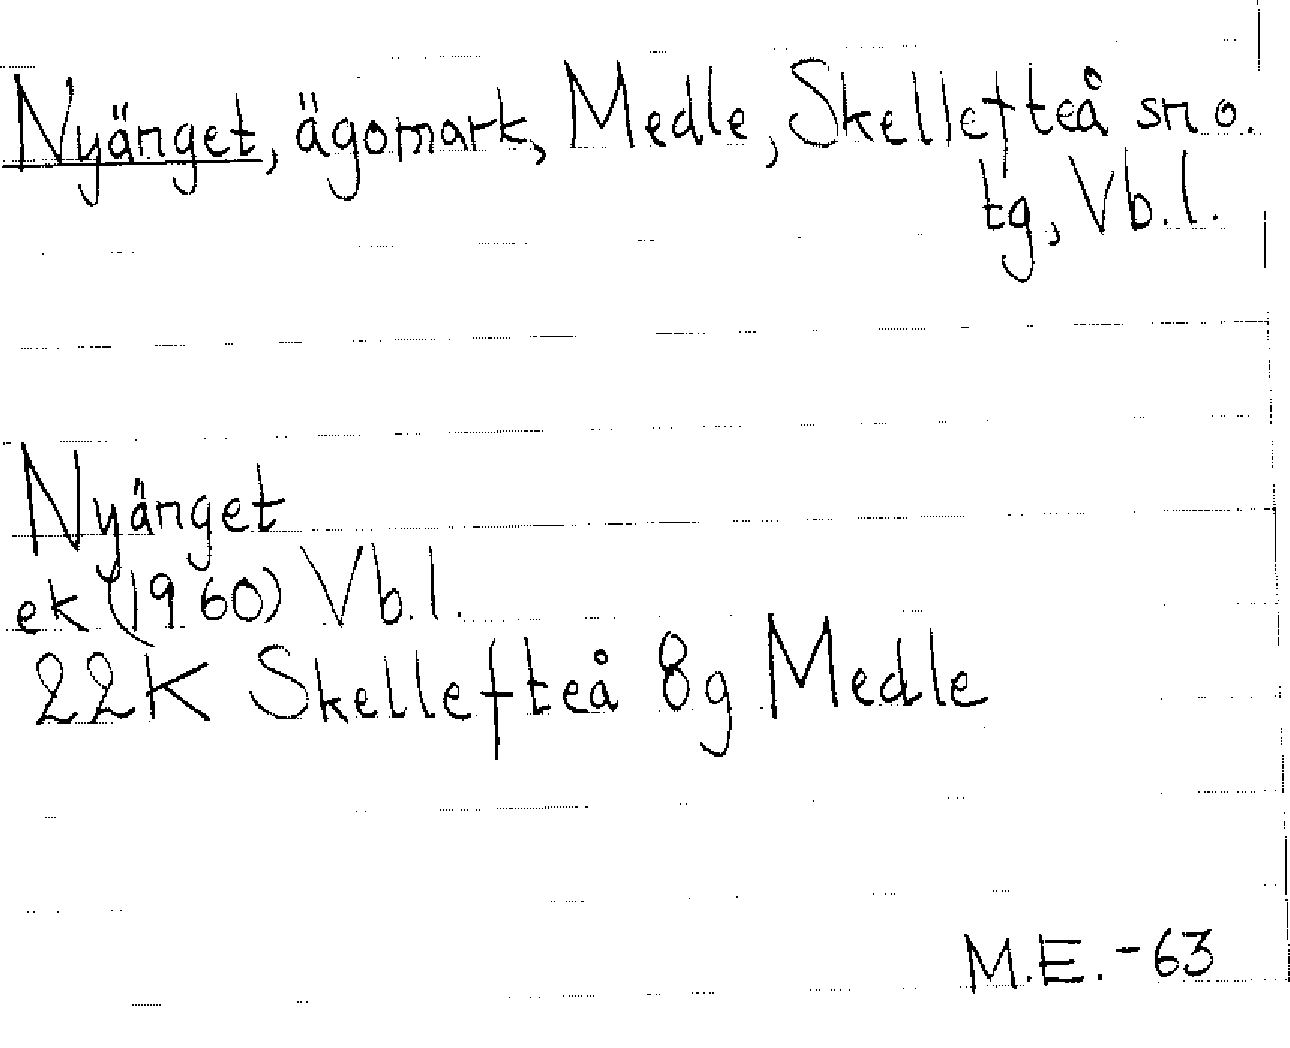 Nyänget, ägomark, Medle, Skellefteå sn o.
tg, Vb.l.
Nyänget
ek (1960) Vb.l.
22K Skellefteå 8g Medle
M.E. -63